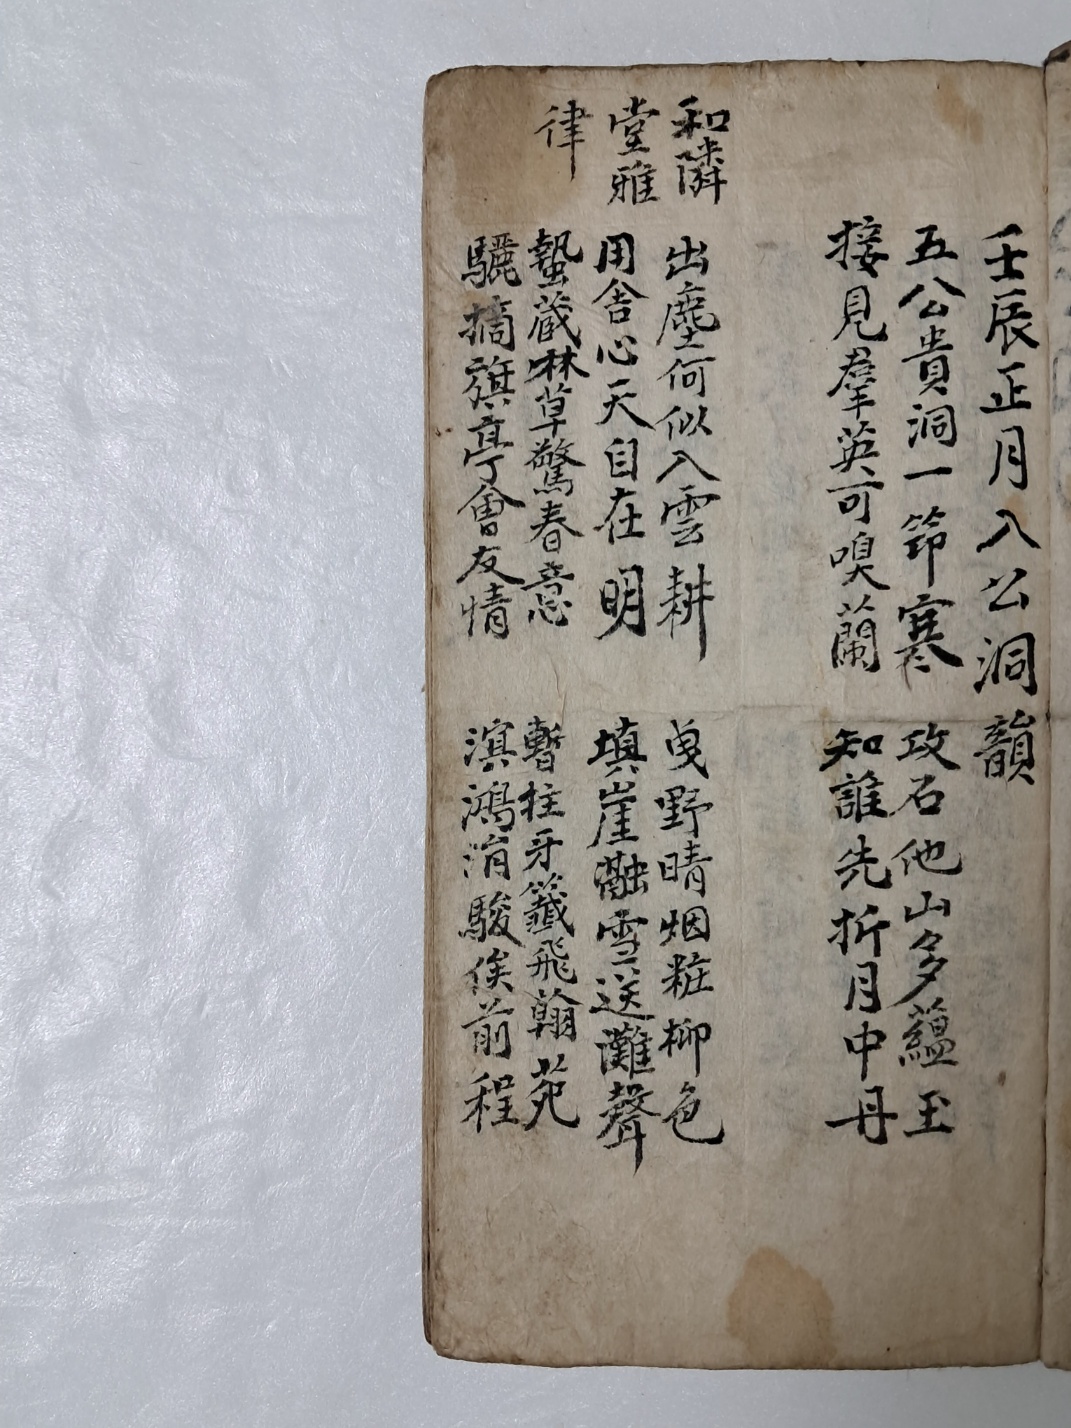 壬辰正月入公洞韻
五公貴洞一節寒 攻石他山多蘊玉
接見羣英可嗅蘭 知誰先折月中丹
和隣
堂雅
律
出塵何似入雲耕 曳野晴烟粧柳色
用舍心天自在明 填崖瀜雪送灘聲
蟄藏啉草驚春意 暫拄牙籤飛翰苑
驪摛旗亭會友情 溟鴻渭駿俟前程